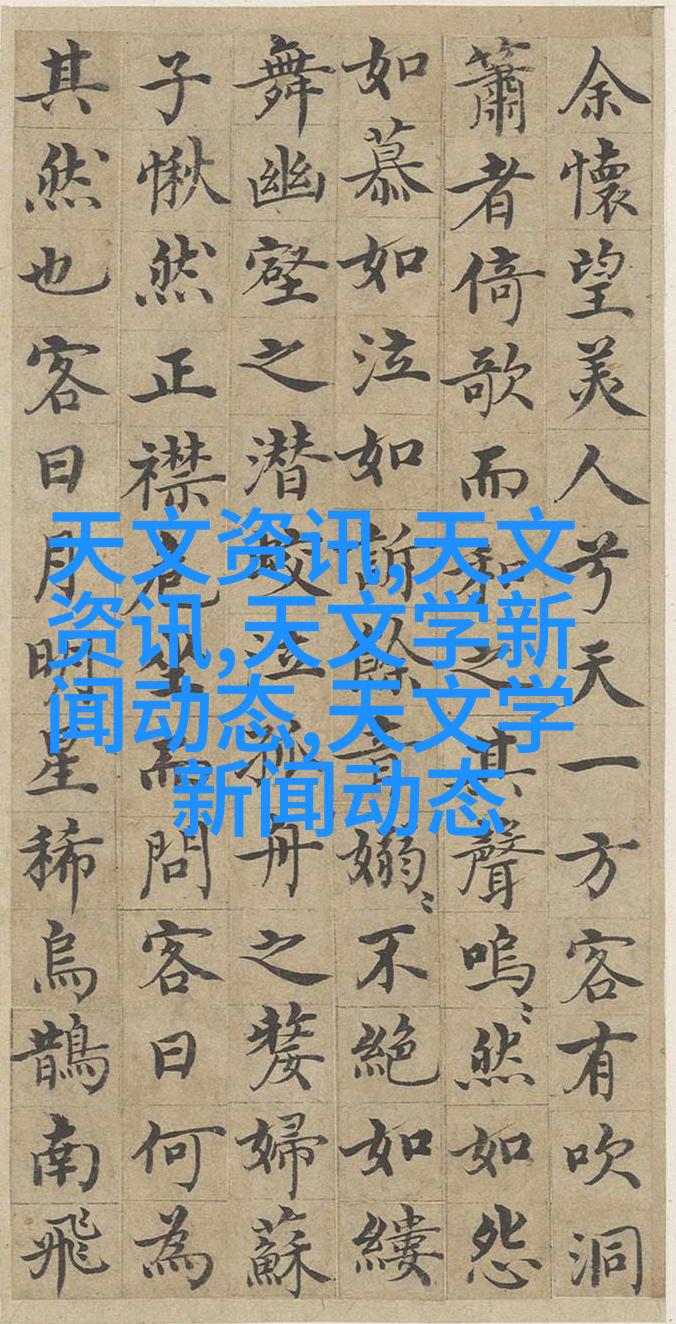 余懷望美人兮天一方客有吹洞
簫者倚歌而和之其聲嗚〻然如怨
如慕如泣如訴餘音嫋〻不絕如縷
舞幽壑之潛蛟泣孤舟之嫠婦蘇
子愀然正襟危坐而問客曰何為
其然也客曰月明星稀烏鵲南飛
天文资讯,天文
资讯,天文学新
闻动态,天文学
新闻动态